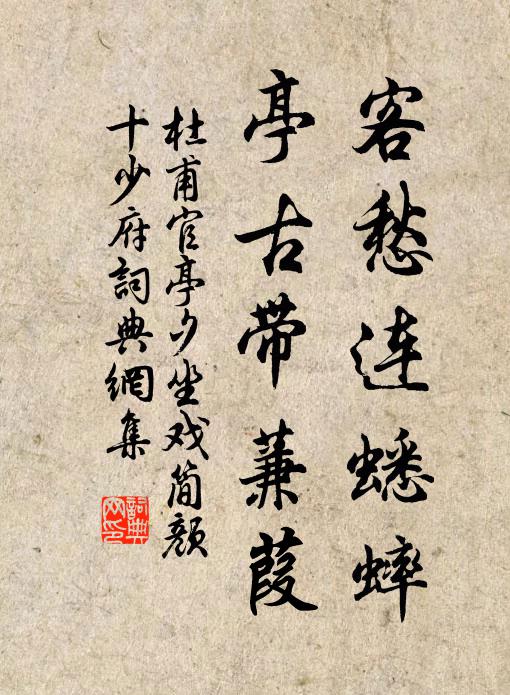 客愁连蟋蟀
亭古带蒹葭
杜甫官亭夕坐戏简颜
十少府詞典網集
詞典网印